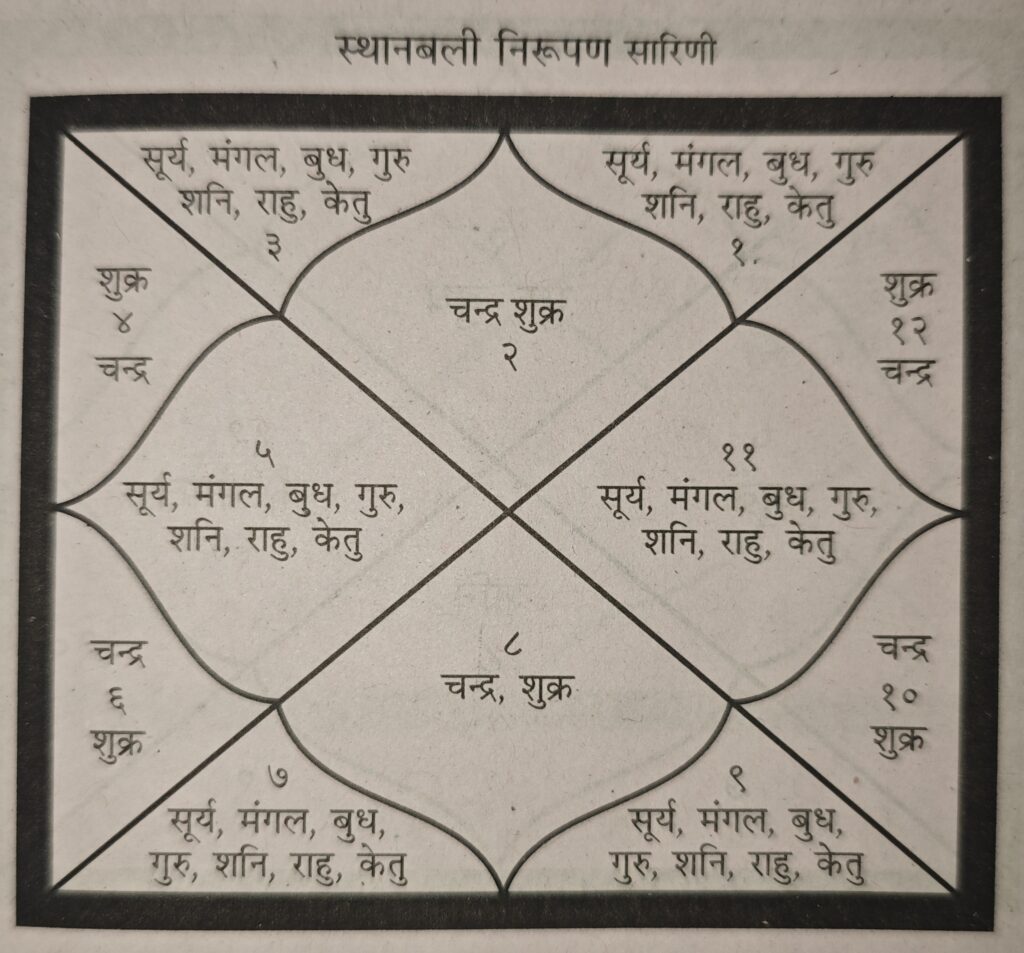 स्थानबली निरूपण सारिणी
सूर्य, मंगल, बुध, गुरु
शनि, राहु, केतु
३
सूर्य, मंगल, बुध, गुरु
शनि, राहु, केतु
१
शुक्र
४
चन्द्र
चन्द्र शुक्र
२
शुक्र
१२
चन्द्र
५
सूर्य, मंगल, बुध, गुरु,
शनि, राहु, केतु
११
सूर्य, मंगल, बुध, गुरु,
शनि, राहु, केतु
चन्द्र
६
शुक्र
८
चन्द्र, शुक्र
चन्द्र
१०
शुक्र
७
सूर्य, मंगल, बुध,
गुरु, शनि, राहु, केतु
९
सूर्य, मंगल, बुध,
गुरु, शनि, राहु, केतु